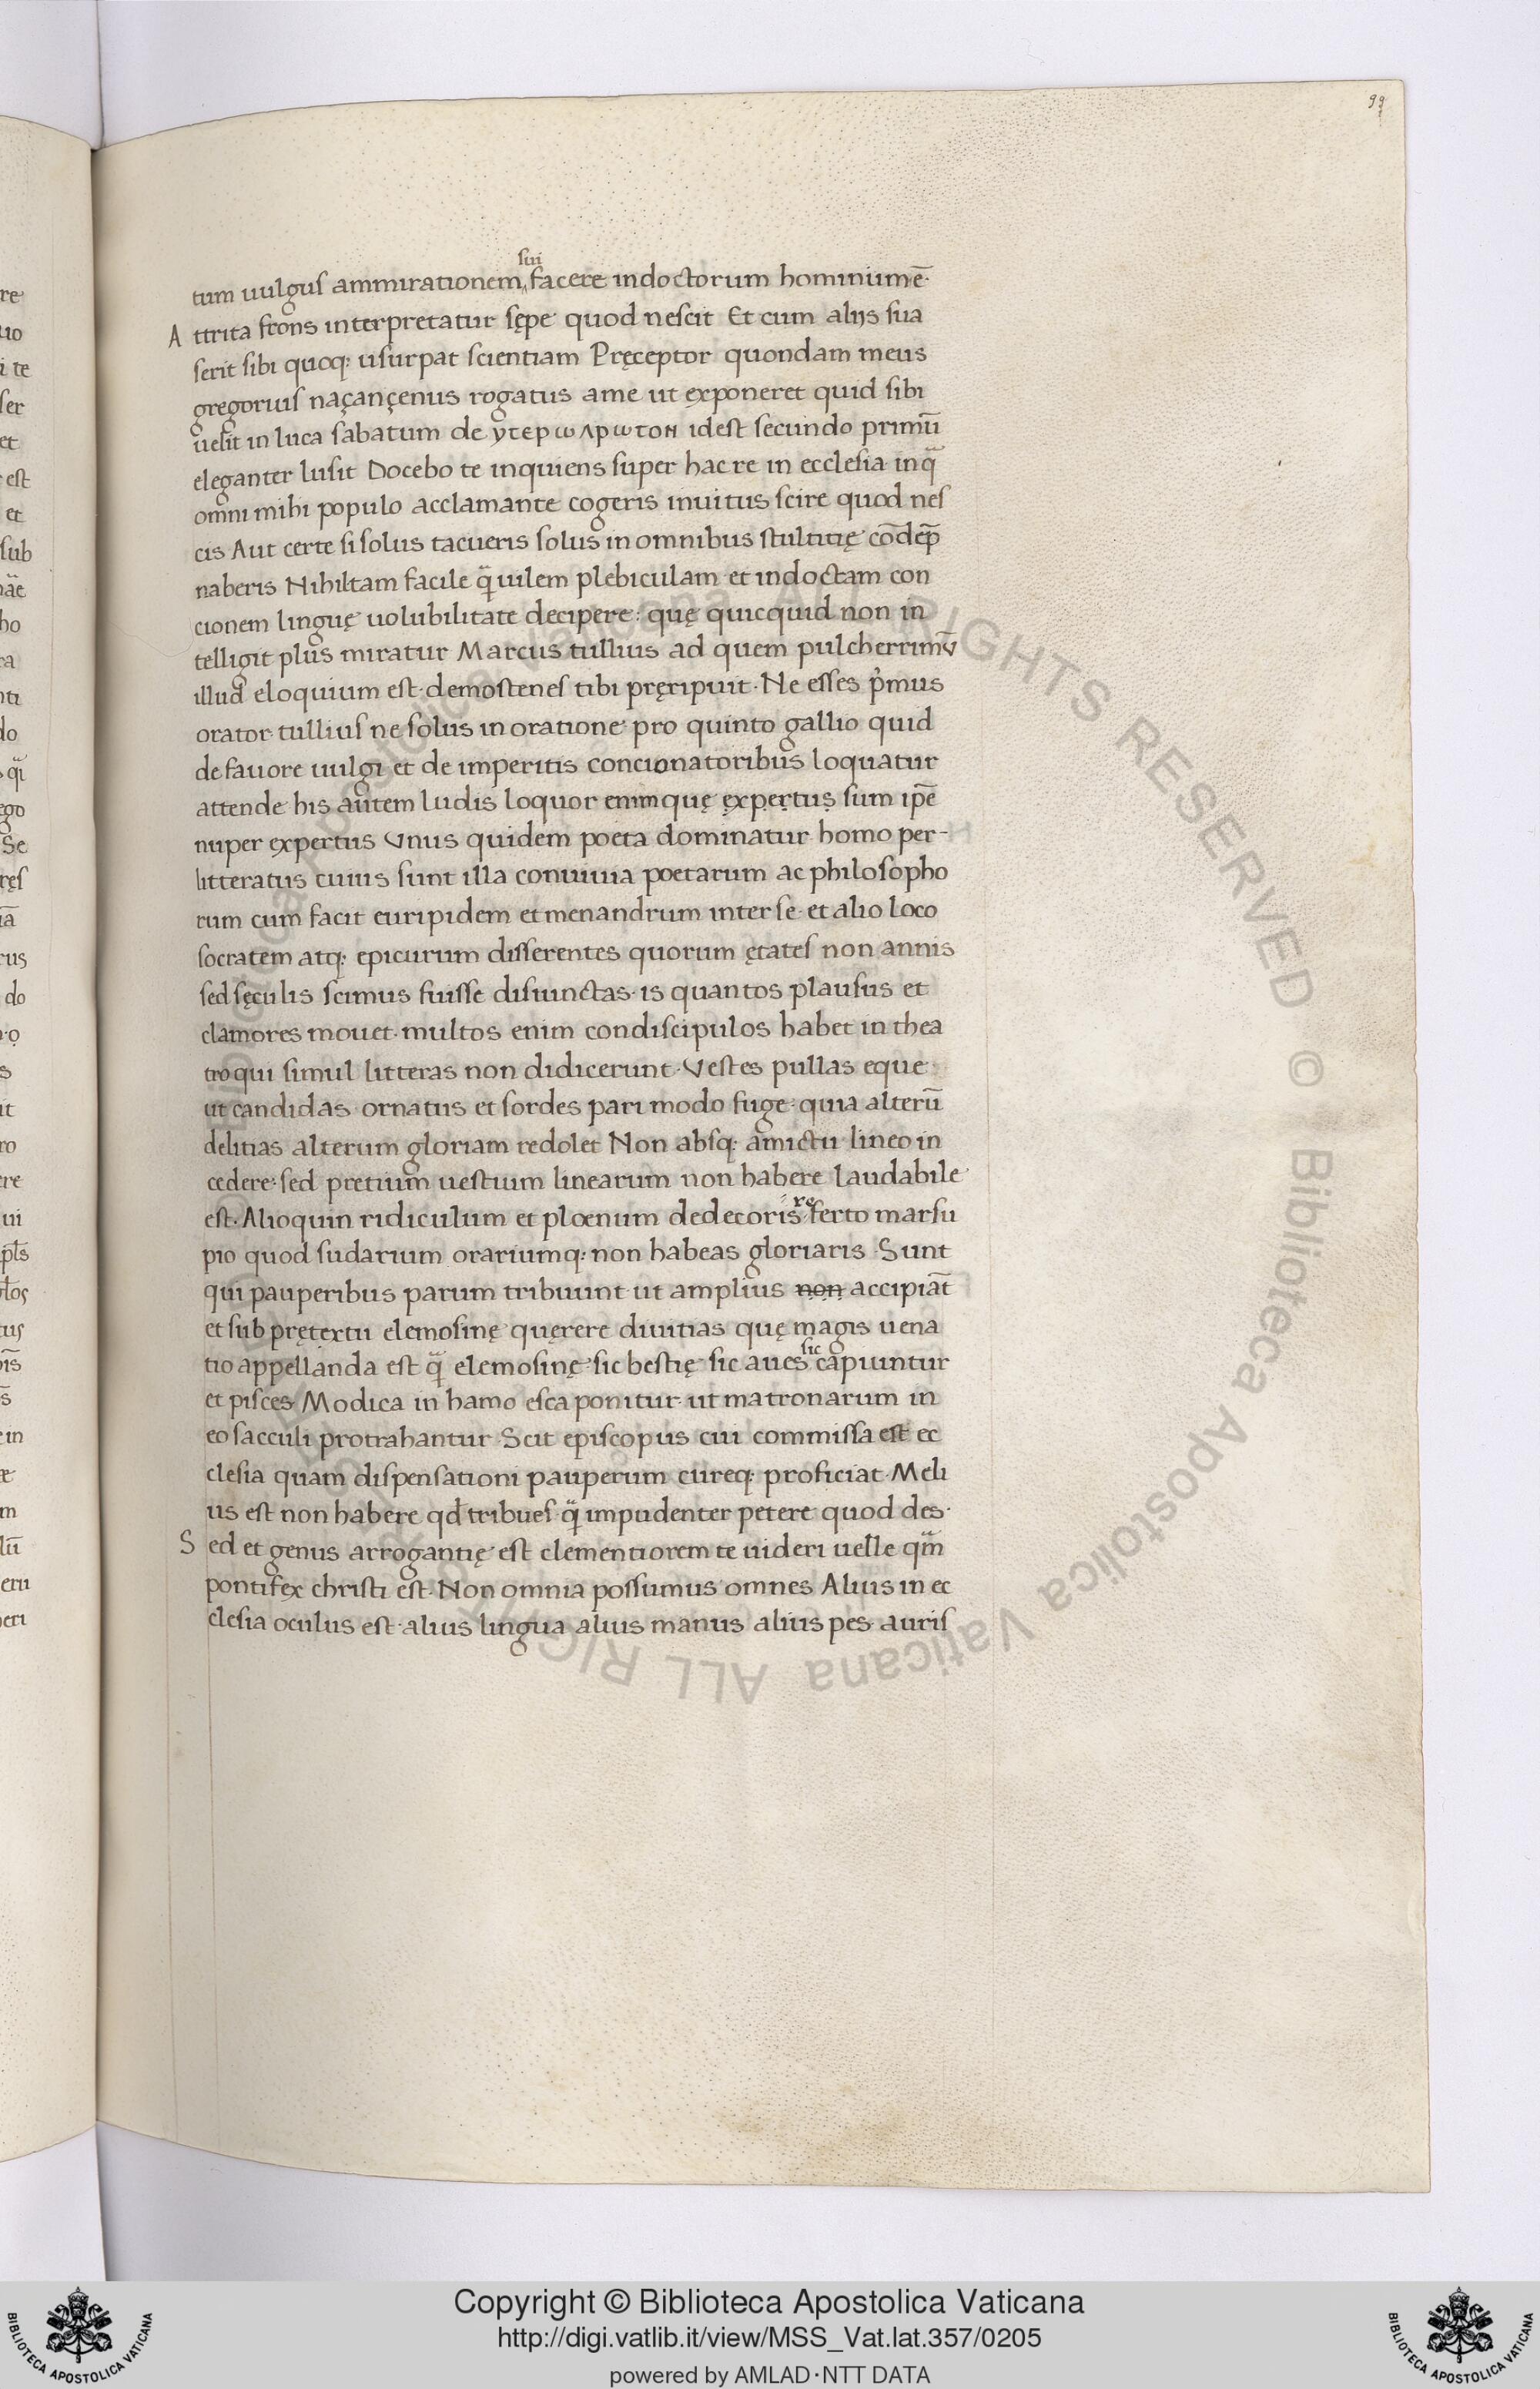 99
tum uulgus ammirationem sui facere indoctorum hominum ē·
Attrita frons interpretatur sępe quod nescit Et cum alijs sua
serit sibi quoq: usurpat scientiam Pręceptor quondam meus
gregorius naçançenus rogatus ame ut exponeret quid sibi
uelit in luca sabatum de yτερωλρωτοη idest secundo primū
eleganter lusit Docebo te inquiens super hac re in ecclesia inq̄
omni mihi populo acclamante cogeris inuitus scire quod nes
cis Aut certe si solus tacueris solus in omnibus stultitię cōdēp̄
naberis Nihil tam facile q̄ uilem plebiculam et indoctam con
cionem linguę uolubilitate decipere: quę quicquid non in
telligit plus miratur Marcus tullius ad quem pulcherrimū
illud eloquium est· demostenes tibi pręripuit· Ne esses p̓mus
orator tullius ne solus in oratione pro quinto gallio quid
de fauore uulgi et de imperitis concionatoribus loquatur
attende his autem ludis loquor enim quę expertus sum ip̄e
nuper expertus Vnus quidem poeta dominatur homo per-
litteratus cuius sunt illa conuiuia poetarum ac philosopho
rum cum facit euripidem et menandrum inter se et alio loco
socratem atq: epicurum disserentes quorum ętates non annis
sed sęculis scimus fuisse disiunctas· is quantos plausus et
clamores mouet· multos enim condiscipulos habet in thea
tro qui simul litteras non didicerunt· Vestes pullas eque
ut candidas ornatus et sordes pari modo fuge· quia alterū
delitias alterum gloriam redolet Non absq: amictu lineo in
cedere: sed pretium uestium linearum non habere laudabile
est· Alioquin ridiculum et plœnum dedecoris referto marsu
pio quod sudarium orariumq: non habeas gloriaris Sunt
qui pauperibus parum tribuunt ut amplius non accipiāt
et sub prętextu elemosinę quęrere diuitias quę magis uena
tio appellanda est q̄ elemosinę sic bestię sic aues sic capiuntur
et pisces Modica in hamo esca ponitur ut matronarum in
eo sacculi protrahantur Scit episcopus cui commissa est ec
clesia quam dispensationi pauperum cureq: proficiat· Meli
us est non habere qd̄ tribues q̄ impudenter petere quod des·
Sed et genus arrogantię est clementiorem te uideri uelle qm̄
pontifex christi est· Non omnia possumus omnes Alius in ec
clesia oculus est· alius lingua alius manus alius pes auris
Copyright © Biblioteca Apostolica Vaticana
http://digi.vatlib.it/view/MSS_Vat.lat.357/0205
powered by AMLAD·NTT DATA